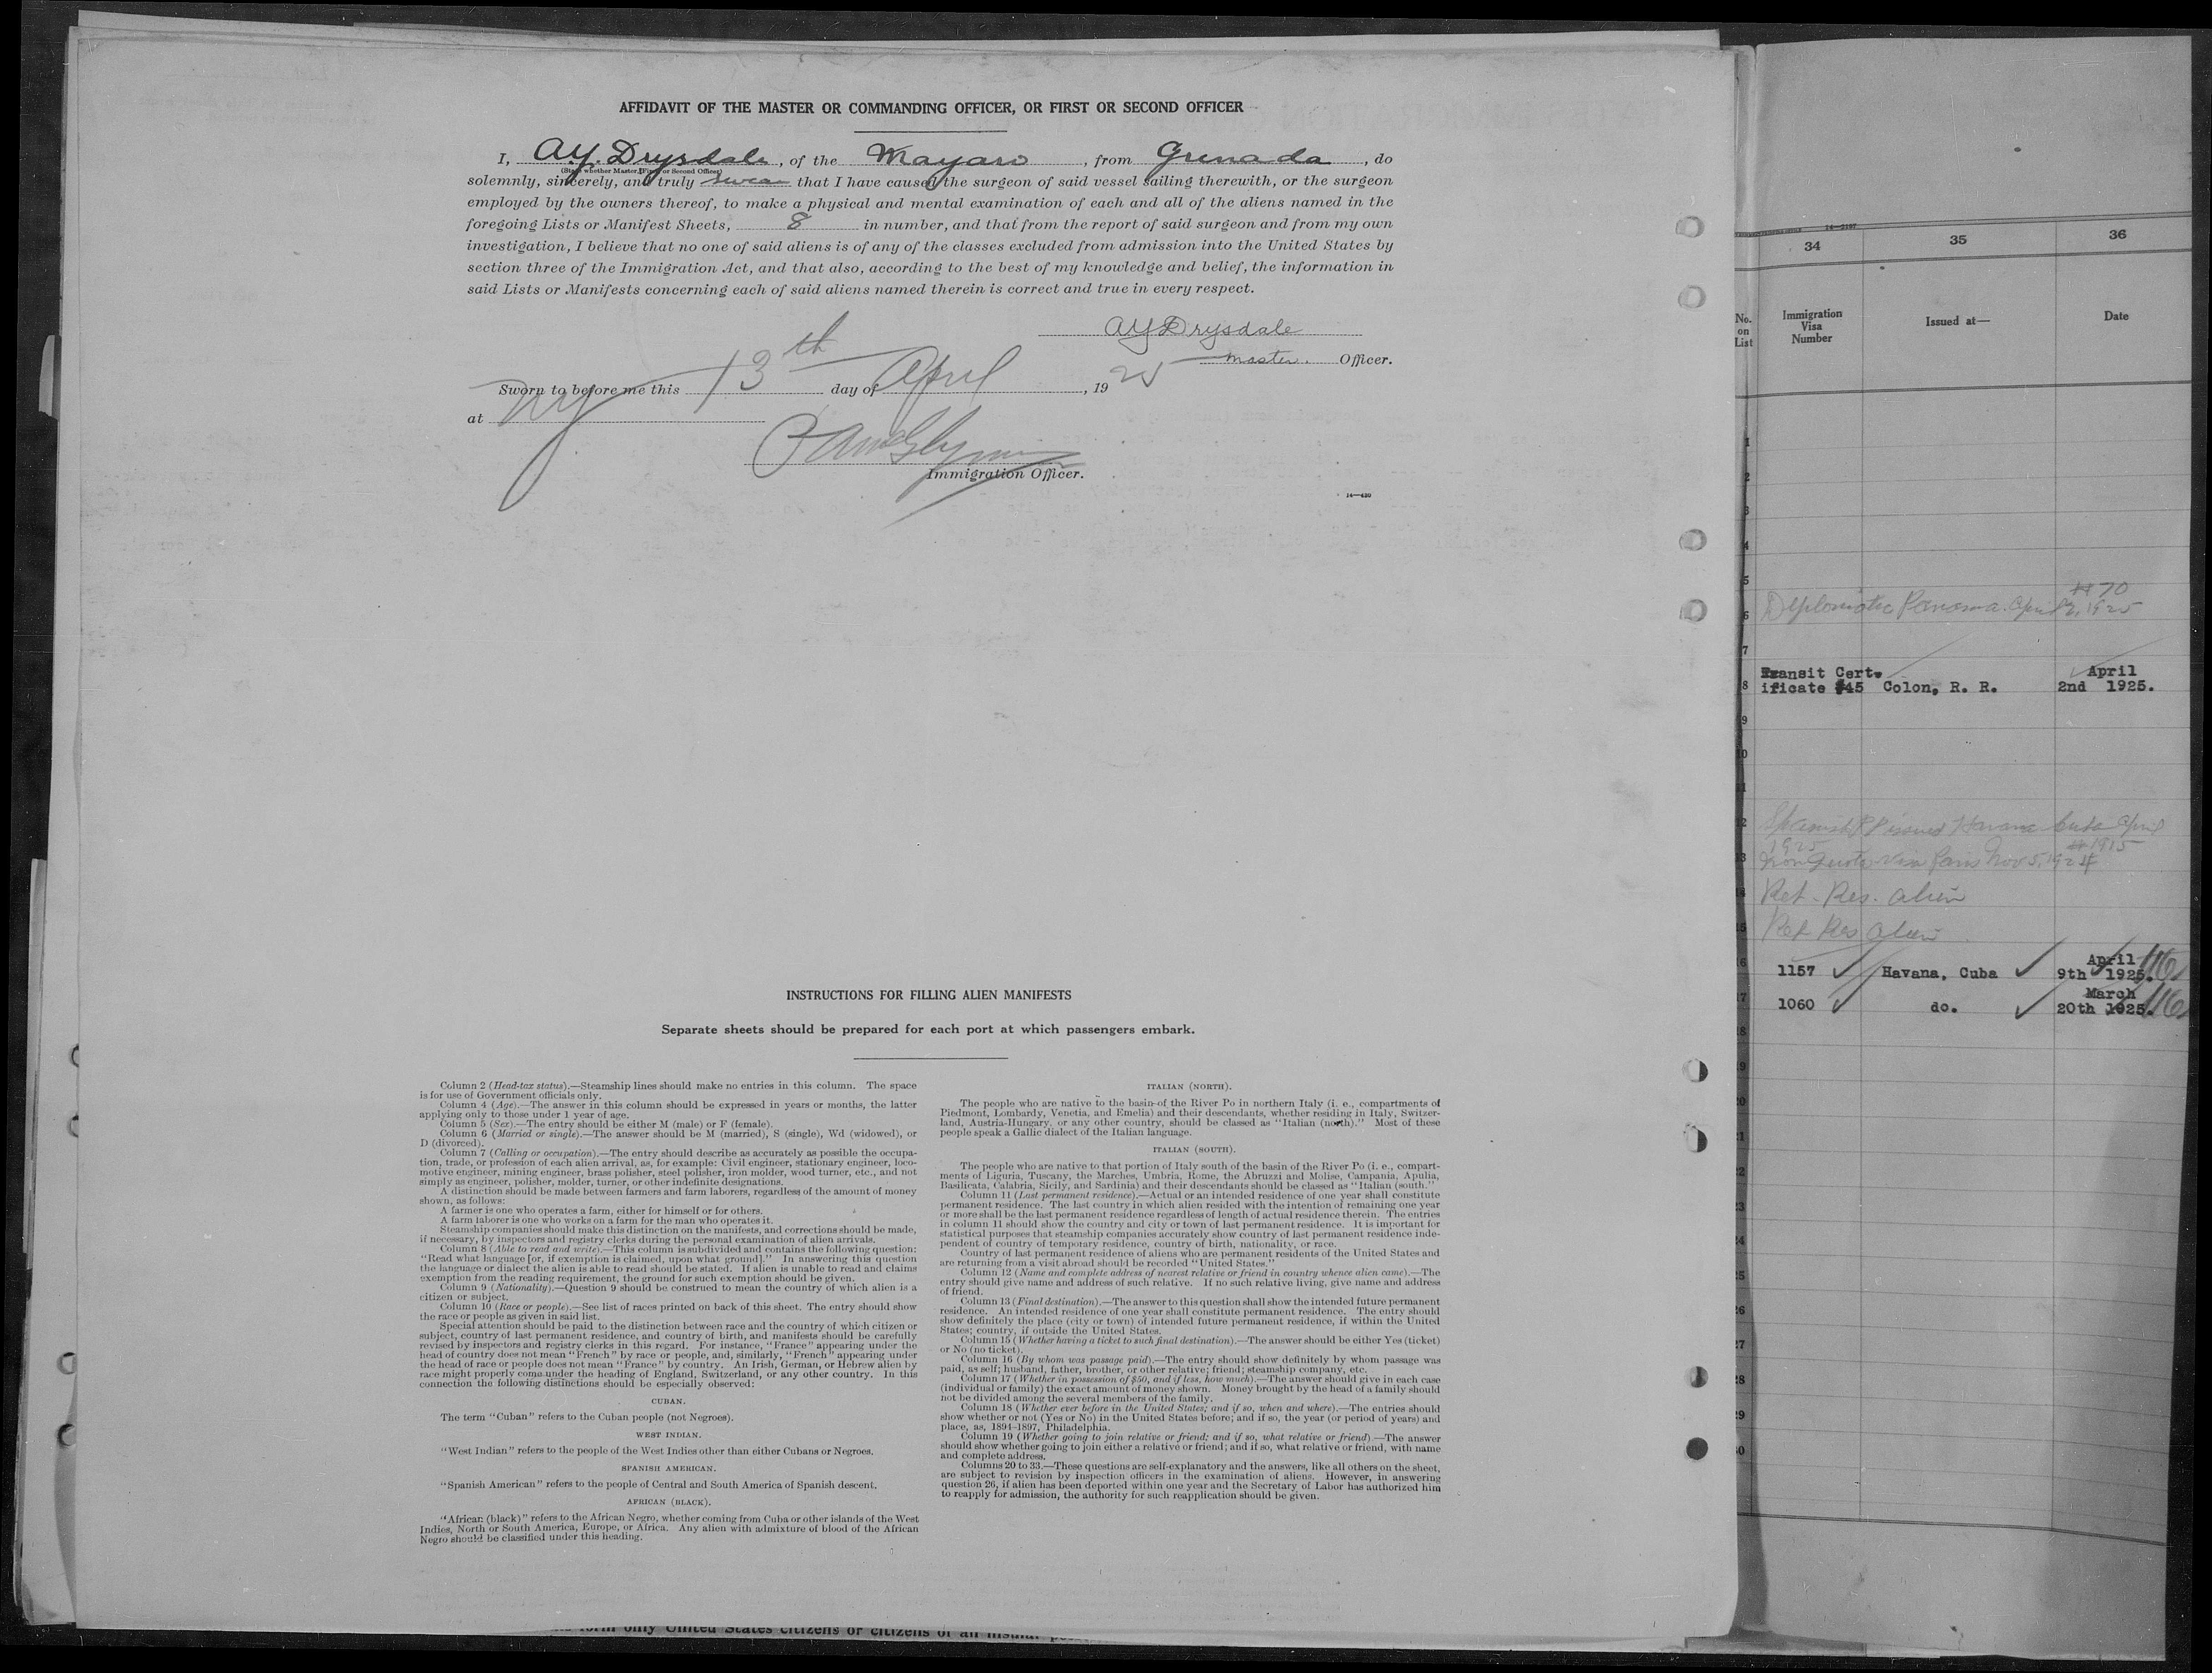 AFFIDAVIT OF THE MASTER OR COMMANDING OFFICER, OR FIRST OR SECOND OFFICER
I, A.Y. Drysdale, of the Mayaro, from Grenada, do
(State whether Master, First or Second Officer)
solemnly, sincerely, and truly swear that I have caused the surgeon of said vessel sailing therewith, or the surgeon
employed by the owners thereof, to make a physical and mental examination of each and all of the aliens named in the
foregoing Lists or Manifest Sheets, 8 in number, and that from the report of said surgeon and from my own
investigation, I believe that no one of said aliens is of any of the classes excluded from admission into the United States by
section three of the Immigration Act, and that also, according to the best of my knowledge and belief, the information in
said Lists or Manifests concerning each of said aliens named therein is correct and true in every respect.
AYDrysdale
Master. Officer.
Sworn to before me this 13th day of April, 1925
at NY
Immigration Officer.
14—430
INSTRUCTIONS FOR FILLING ALIEN MANIFESTS
Separate sheets should be prepared for each port at which passengers embark.
Column 2 (Head-tax status).—Steamship lines should make no entries in this column. The space
is for use of Government officials only.
Column 4 (Age).—The answer in this column should be expressed in years or months, the latter
applying only to those under 1 year of age.
Column 5 (Sex).—The entry should be either M (male) or F (female).
Column 6 (Married or single).—The answer should be M (married), S (single), Wd (widowed), or
D (divorced).
Column 7 (Calling or occupation).—The entry should describe as accurately as possible the occupa-
tion, trade, or profession of each alien arrival, as, for example: Civil engineer, stationary engineer, loco-
motive engineer, mining engineer, brass polisher, steel polisher, iron molder, wood turner, etc., and not
simply as engineer, polisher, molder, turner, or other indefinite designations.
A distinction should be made between farmers and farm laborers, regardless of the amount of money
shown, as follows:
A farmer is one who operates a farm, either for himself or for others.
A farm laborer is one who works on a farm for the man who operates it.
Steamship companies should make this distinction on the manifests, and corrections should be made,
if necessary, by inspectors and registry clerks during the personal examination of alien arrivals.
Column 8 (Able to read and write).—This column is subdivided and contains the following question:
"Read what language [or, if exemption is claimed, upon what ground]." In answering this question
the language or dialect the alien is able to read should be stated. If alien is unable to read and claims
exemption from the reading requirement, the ground for such exemption should be given.
Column 9 (Nationality).—Question 9 should be construed to mean the country of which alien is a
citizen or subject.
Column 10 (Race or people).—See list of races printed on back of this sheet. The entry should show
the race or people as given in said list.
Special attention should be paid to the distinction between race and the country of which citizen or
subject, country of last permanent residence, and country of birth, and manifests should be carefully
revised by inspectors and registry clerks in this regard. For instance, "France" appearing under the
head of country does not mean "French" by race or people, and, similarly, "French" appearing under
the head of race or people does not mean "France" by country. An Irish, German, or Hebrew alien by
race might properly come under the heading of England, Switzerland, or any other country. In this
connection the following distinctions should be especially observed:
CUBAN.
The term "Cuban" refers to the Cuban people (not Negroes).
WEST INDIAN.
"West Indian" refers to the people of the West Indies other than either Cubans or Negroes.
SPANISH AMERICAN.
"Spanish American" refers to the people of Central and South America of Spanish descent.
AFRICAN (BLACK).
"African (black)" refers to the African Negro, whether coming from Cuba or other islands of the West
Indies, North or South America, Europe, or Africa. Any alien with admixture of blood of the African
Negro should be classified under this heading.
ITALIAN (NORTH).
The people who are native to the basin of the River Po in northern Italy (i. e., compartments of
Piedmont, Lombardy, Venetia, and Emelia) and their descendants, whether residing in Italy, Switzer-
land, Austria-Hungary, or any other country, should be classed as "Italian (north)." Most of these
people speak a Gallic dialect of the Italian language.
ITALIAN (SOUTH).
The people who are native to that portion of Italy south of the basin of the River Po (i. e., compart-
ments of Liguria, Tuscany, the Marches, Umbria, Rome, the Abruzzi and Molise, Campania, Apulia,
Basilicata, Calabria, Sicily, and Sardinia) and their descendants should be classed as "Italian (south."
Column 11 (Last permanent residence).—Actual or an intended residence of one year shall constitute
permanent residence. The last country in which alien resided with the intention of remaining one year
or more shall be the last permanent residence regardless of length of actual residence therein. The entries
in column 11 should show the country and city or town of last permanent residence. It is important for
statistical purposes that steamship companies accurately show country of last permanent residence inde-
pendent of country of temporary residence, country of birth, nationality, or race.
Country of last permanent residence of aliens who are permanent residents of the United States and
are returning from a visit abroad should be recorded "United States."
Column 12 (Name and complete address of nearest relative or friend in country whence alien came).—The
entry should give name and address of such relative. If no such relative living, give name and address
of friend.
Column 13 (Final destination).—The answer to this question shall show the intended future permanent
residence. An intended residence of one year shall constitute permanent residence. The entry should
show definitely the place (city or town) of intended future permanent residence, if within the United
States; country, if outside the United States.
Column 15 (Whether having a ticket to such final destination).—The answer should be either Yes (ticket)
or No (no ticket).
Column 16 (By whom was passage paid).—The entry should show definitely by whom passage was
paid, as self; husband, father, brother, or other relative; friend; steamship company, etc.
Column 17 (Whether in possession of $50, and if less, how much).—The answer should give in each case
(individual or family) the exact amount of money shown. Money brought by the head of a family should
not be divided among the several members of the family.
Column 18 (Whether ever before in the United States; and if so, when and where).—The entries should
show whether or not (Yes or No) in the United States before; and if so, the year (or period of years) and
place, as, 1894-1897, Philadelphia.
Column 19 (Whether going to join relative or friend; and if so, what relative or friend).—The answer
should show whether going to join either a relative or friend; and if so, what relative or friend, with name
and complete address.
Columns 20 to 33.—These questions are self-explanatory and the answers, like all others on the sheet,
are subject to revision by inspection officers in the examination of aliens. However, in answering
question 26, if alien has been deported within one year and the Secretary of Labor has authorized him
to reapply for admission, the authority for such reapplication should be given.
form only United States citizens or citizens of an insular
14—2197
34 35 36
No.
on
List
Immigration
Visa
Number
Issued at—
Date
#70
Diplomatic Panama. April 2, 1925
Transit Cert.
ificate #45 Colon, R. R.
April
2nd 1925.
Spanish PP issued Havana Cuba April
1925 #1915
Non Quota Visa Paris Nov 5, 1924
Ret. Res. Alien
Ret Res Alien
1157 Havana, Cuba April
9th 1925.
1060 do. March
20th 1925.